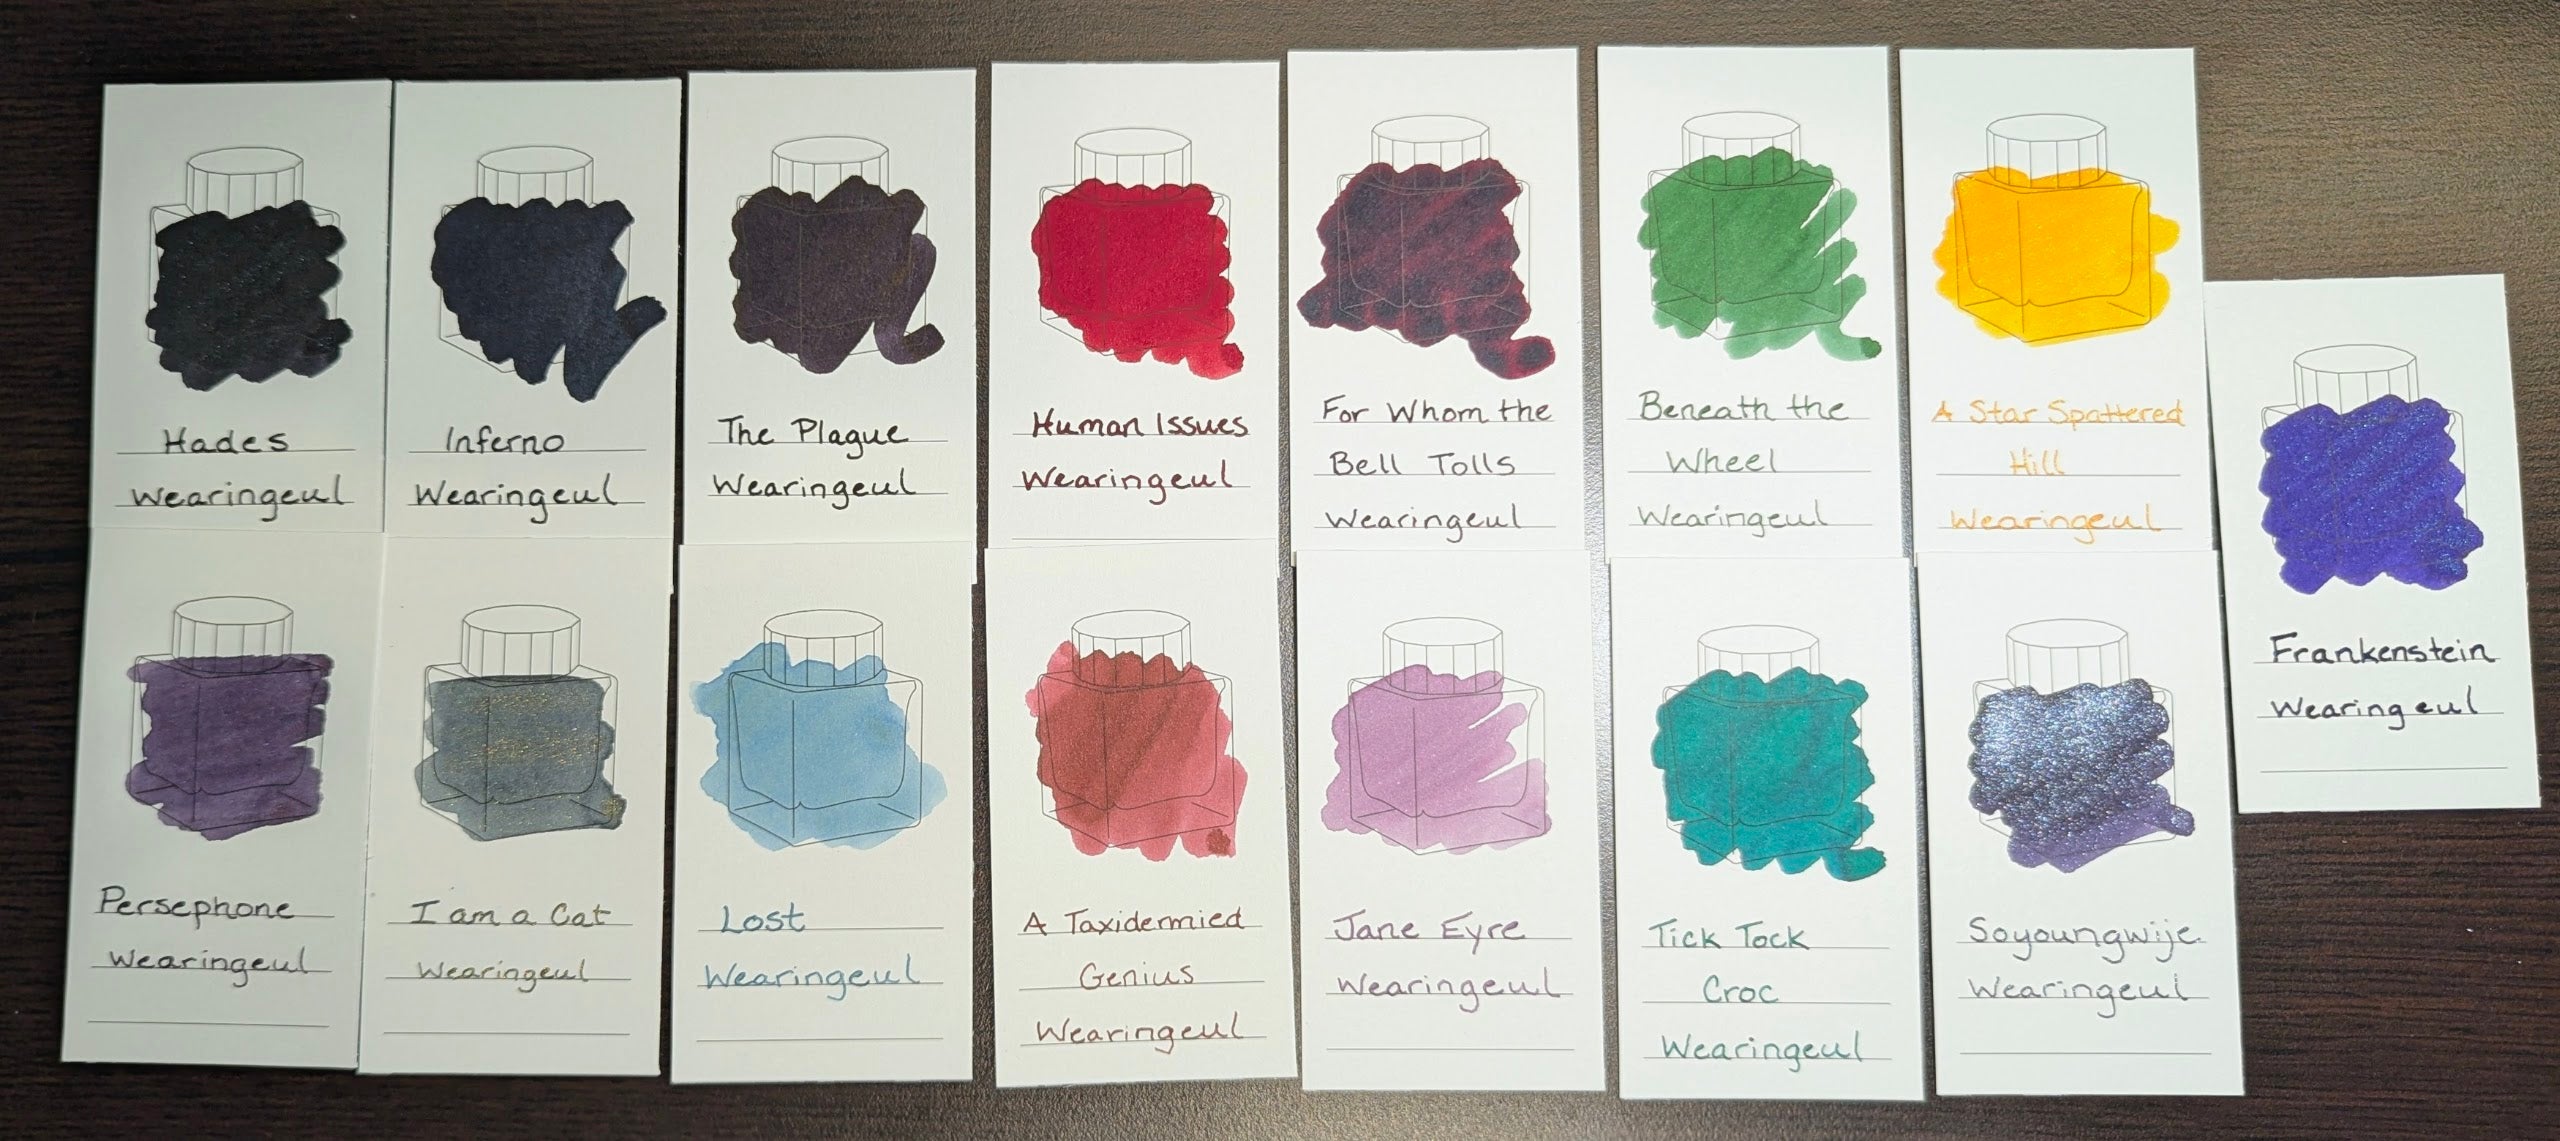 Hades
Wearingeul
Inferno
Wearingeul
The Plague
Wearingeul
Human Issues
Wearingeul
For Whom the
Bell Tolls
Wearingeul
Beneath the
Wheel
Wearingeul
A Star Spattered
Hill
Wearingeul
Frankenstein
Wearingeul
Persephone
Wearingeul
I am a Cat
Wearingeul
Lost
Wearingeul
A Taxidermied
Genius
Wearingeul
Jane Eyre
Wearingeul
Tick Tock
Croc
Wearingeul
Soyoungwije
Wearingeul